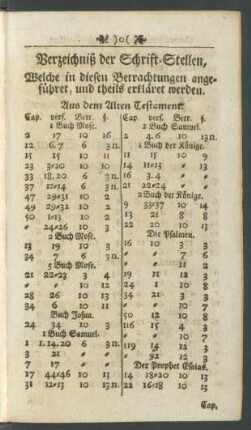 )o(
Verzeichniß der Schrift-Stellen,
Welche in diesen Betrachtungen ange-
führet, und theils erkläret werden.
Aus dem Alten Testament
Cap. vers. Betr. §.
1 Buch Mose.
2 17 10 16
12 6.7 6 3 n.
15 15 10 11
23 3=20 10 30
33 18.20 6 3 n.
37 12=14 6 3 n.
47 29=31 10 2
49 29=32 10 2
50 1=13 10 2
" 24=26 10 3
2 Buch Mose.
13 19 10 3
34 7 6 3 n.
5 Buch Mose.
21 22=23 3 4
28 26 10 13
34 6 10 11
Buch Josua.
24 34 10 3
1 Buch Samuel.
1 1.14.20 6 3 n.
3 21 " "
7 17 " "
17 44=46 10 13
31 12=13 10 13
Cap. vers. Betr. §.
2 Buch Samuel.
2 4.6 10 13 n.
1 Buch der Könige.
11 15 10 9
14 23 6 3 n.
16 4 10 13
21 22=24 " "
2 Buch der Könige.
9 33=37 10 14
13 21 8 8
22 20 10 13
Die Psalmen.
16 10 3 3
" " 7
" " 11 2
19 12 10
24 1 8
34 8 3
" 10 7
50 12 10 8
116 15 4 3
" " 10 7
119 14 3
" 92 12 3
Der Prophet Esaias.
14 18=20 10 13
22 16=18 10 13
Cap,